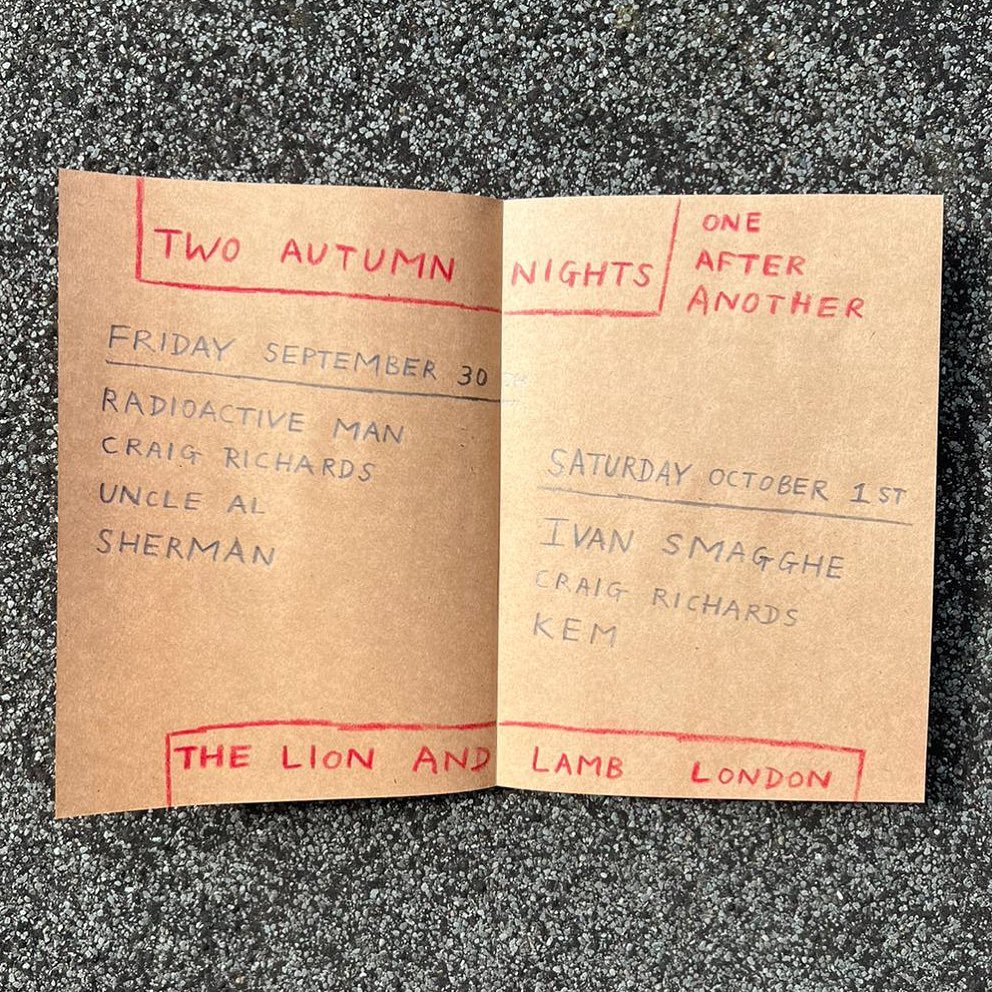 TWO AUTUMN NIGHTS
ONE
AFTER
ANOTHER
FRIDAY SEPTEMBER 30TH
RADIOACTIVE MAN
CRAIG RICHARDS
UNCLE AL
SHERMAN
SATURDAY OCTOBER 1ST
IVAN SMAGGHE
CRAIG RICHARDS
KEM
THE LION AND LAMB LONDON